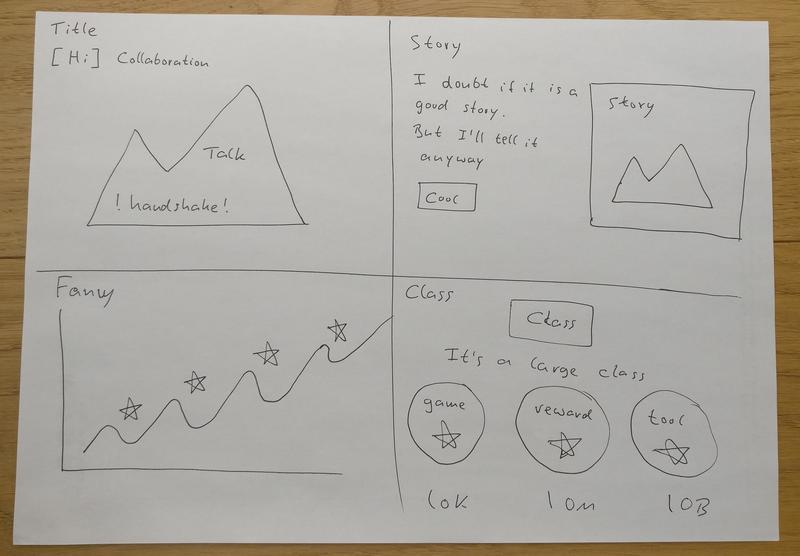 Title
[Hi] Collaboration
Talk
! handshake!
Story
I doubt if it is a
good story.
But I'll tell it
anyway
Cool
Story
Fancy
Class
Class
It's a large class
game
reward
tool
10K
10M
10B